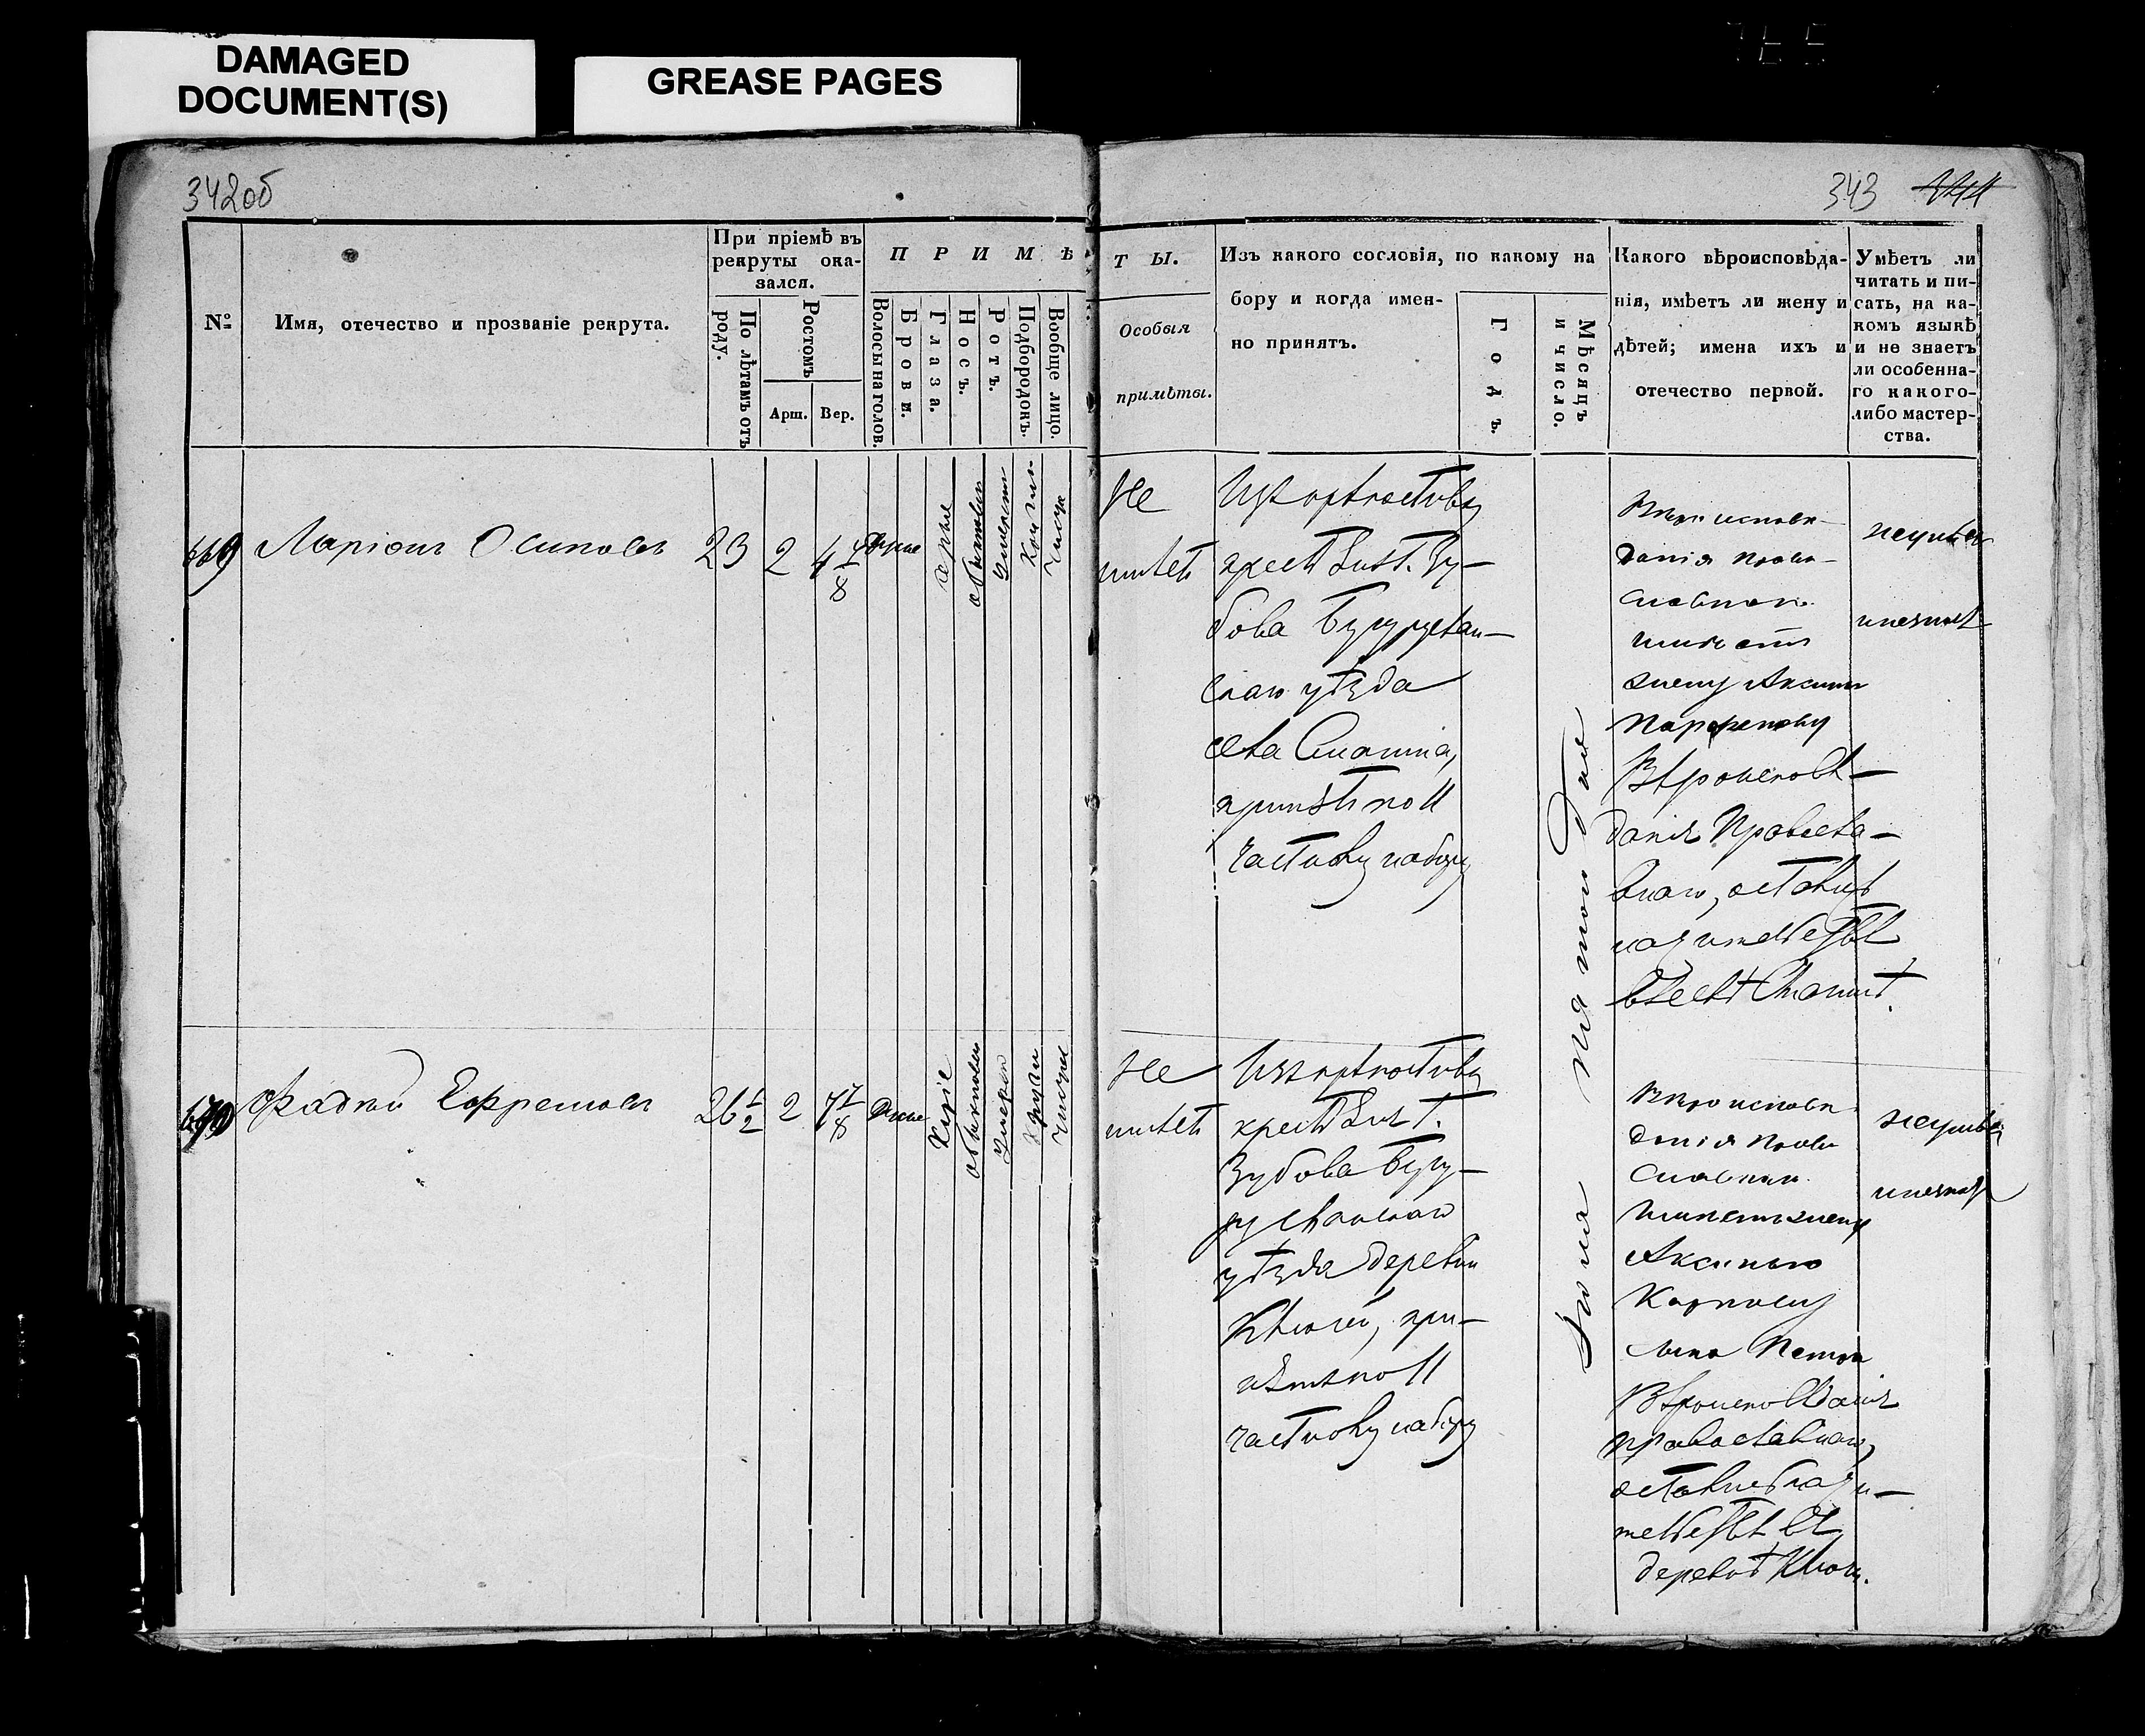 DAMAGED
DOCUMENT(S)
GREASE PAGES
342об
343 344
№
Имя, отчество и прозваніе рекрута.
При пріемѣ въ
рекруты ока-
зался.
По лѣтамъ отъ
роду.
Ростомъ
Арш.
Вер.
П Р И М Ѣ
Волосы на голов.
Брови.
Глаза.
Носъ.
Ротъ.
Подбородокъ.
Вообще лицо.
Т Ы.
Особыя
примѣты.
Изъ какого сословія, по какому на
бору и когда имен-
но принятъ.
Годъ.
Мѣсяцъ
и число.
Какого вѣроисповѣда-
нія, имѣетъ ли жену и
дѣтей; имена ихъ и
отечество первой.
Умѣетъ ли
читать и пи-
сать, на ка-
комъ языкѣ
и не знаетъ
ли особенна-
го какого-
либо мастер-
ства.
669
Ларіонъ Осиповъ
23
2
4
сѣрые
обыкновен
умерен
чистое
Не
имѣетъ
Изъ крѣпостныхъ
крест. Зу-
бова Бугуруслан-
скаго уѣзда
села
принятъ по 11
частному набору
Іюля пятого дня
Вѣроисповѣ-
данія право-
славнаго
имѣетъ
жену Аксинью
Парфенову
Вѣроисповѣ-
данія Правосла-
внаго, оставилъ
на жительствѣ
въ селѣ
неумѣетъ
и незнаетъ
670
Фадѣй Ефремовъ
26 1/2
2
7 7/8
Русые
Каріе
обыкновен
умерен
кругл
чистое
Не
имѣетъ
Изъ крѣпостныхъ
крест.
Зубова Бугу-
русланскаго
уѣзда деревни
при-
нятъ по 11
частному набору
Вѣроисповѣ
данія Право
славнаго
имѣетъ жену
Аксинью
Карпову
сына Петра
Вѣроисповѣданія
православнаго,
оставилъ на жи-
тельствѣ въ
деревнѣ
неумѣетъ
и незнаетъ